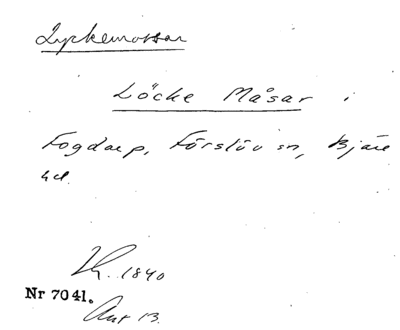 Lyckemossar
Löcke Måsar i
Fogdarp, Förslöv sn, Bjäre
hd.
1840
Nr 7041.
Akt 13.